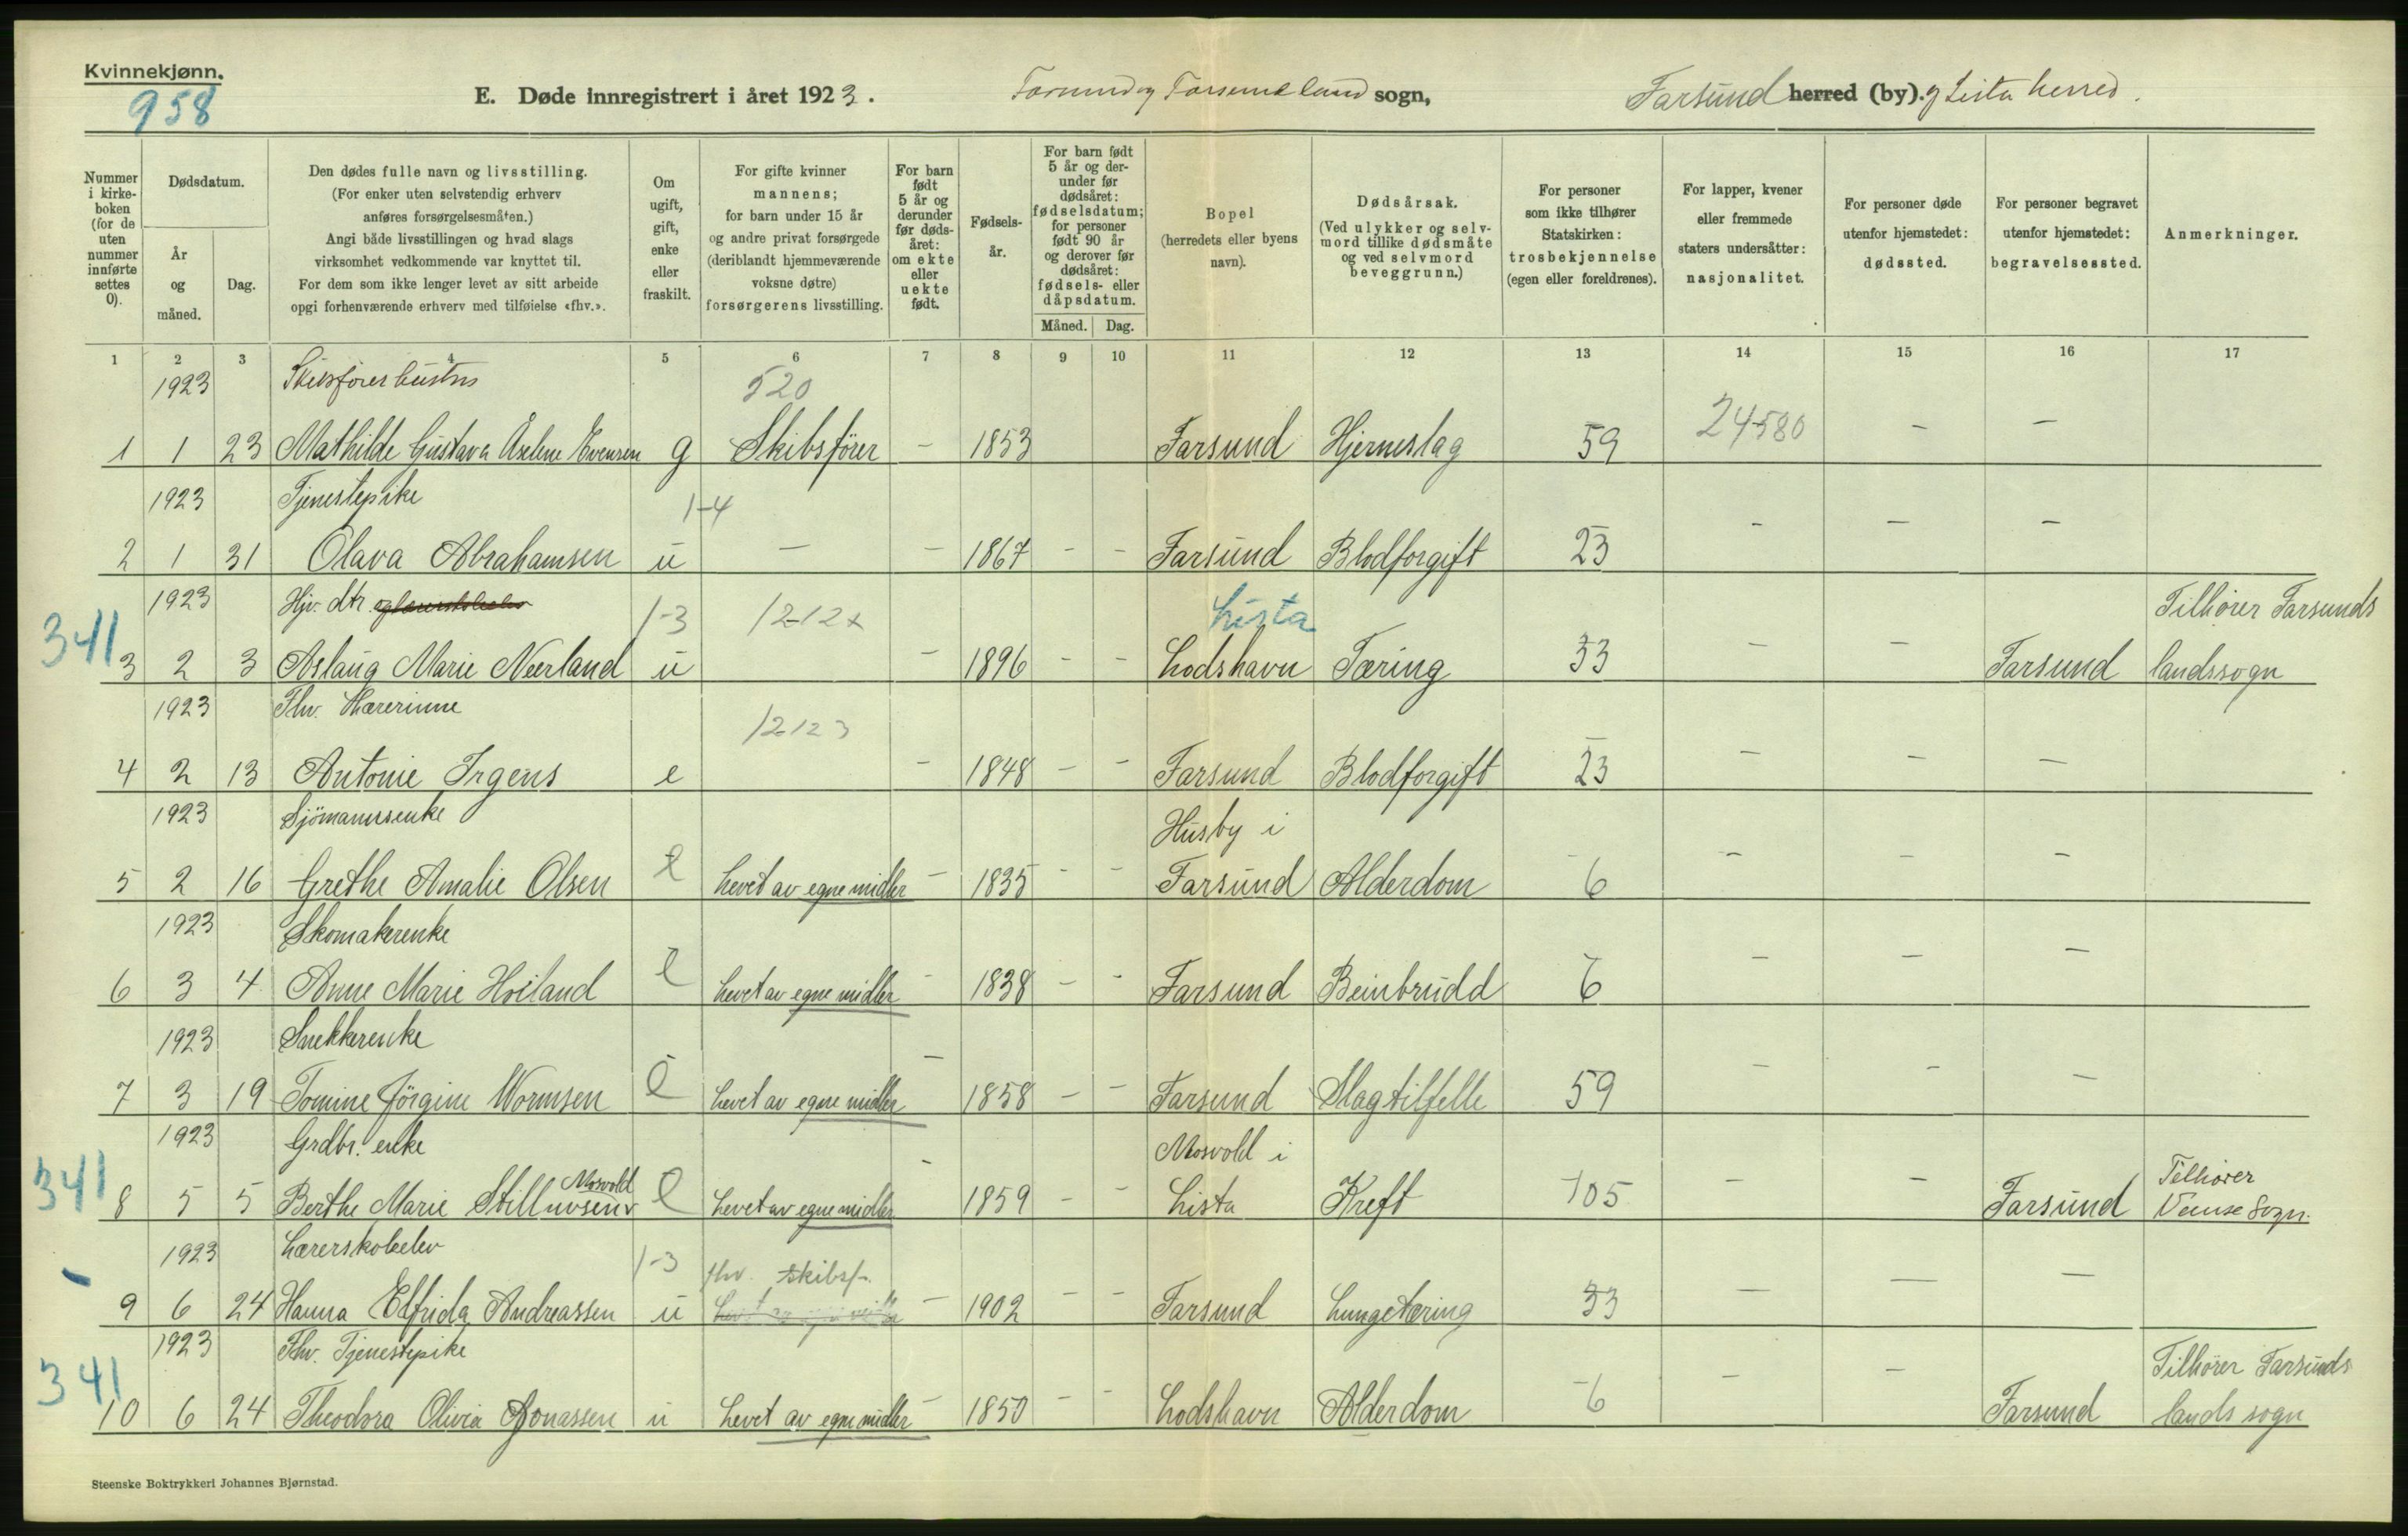 Kvinnekjønn.
958
E. Døde innregistrert i året 1923. Farsund og Farsund land sogn, Farsund herred (by). og Lista herred.
Nummer i kirkeboken (for de uten nummer innførte settes 0).
Dødsdatum.
År og måned.
Dag.
Den dødes fulle navn og livsstilling.
(For enker uten selvstendig erhverv anføres forsørgelsesmåten.)
Angi både livsstillingen og hvad slags virksomhet vedkommende var knyttet til.
For dem som ikke lenger levet av sitt arbeide opgi forhenværende erhverv med tilføielse «fhv.».
Om ugift, gift, enke eller fraskilt.
For gifte kvinner mannens; for barn under 15 år og andre privat forsørgede (deriblandt hjemmeværende voksne døtre) forsørgerens livsstilling.
For barn født 5 år og derunder før dødsåret: om ekte eller uekte født.
Fødselsår.
For barn født 5 år og derunder før dødsåret: fødselsdatum; for personer født 90 år og derover før dødsåret: fødsels- eller dåpsdatum.
Måned. Dag.
Bopel (herredets eller byens navn).
Dødsårsak.
(Ved ulykker og selvmord tillike dødsmåte og ved selvmord beveggrunn.)
For personer som ikke tilhører Statskirken: trosbekjennelse (egen eller foreldrenes).
For lapper, kvener eller fremmede staters undersåtter: nasjonalitet.
For personer døde utenfor hjemstedet: dødssted.
For personer begravet utenfor hjemstedet: begravelsessted.
Anmerkninger.
1 2 3 4 5 6 7 8 9 10 11 12 13 14 15 16 17
1923 Skibsførerhustru 520
1 1 23 Mathilde Gustava Axeline Evensen g Skibsfører - 1853 Farsund Hjerneslag 59 24580 - -
1923 Tjenestepike 1-4
2 1 31 Olava Abrahamsen u - - 1867 - - Farsund Blodforgift 23 - - -
1923 Hjv. dtr. 1-3 12-12x Lista Tilhører Farsunds
341 3 2 3 Aslaug Marie Neerland u - 1896 - - Lodshavn Tæring 33 - - Farsund landssogn
1923 Fhv. Lærerinne 12-123
4 2 13 Antonie Irgens e - 1848 - - Farsund Blodforgift 23 - - -
1923 Sjömannsenke Husby i
5 2 16 Grethe Amalie Olsen e Levet av egne midler - 1835 - - Farsund Alderdom 6 - - -
1923 Skomakerenke
6 3 4 Anne Marie Hoiland e Levet av egne midler - 1838 - - Farsund Beinbrudd 6 - - -
1923 Snekkerenke
7 3 19 Tomine Jörgine Wormsen e Levet av egne midler - 1858 - - Farsund Slagtilfelle 59 - - -
1923 Grdbr. enke Mosvold i
341 8 5 5 Berthe Marie Mosvold e Levet av egne midler - 1859 - - Lista Kreft 105 - - Farsund Tilhører Vanse Sogn.
1923 Lærerskoleelev 1-3 fhv. skibsf.
9 6 24 Hanna Elfrida Andreassen u - 1902 - - Farsund Lungetæring 33 - - -
1923 Fhv. Tjenestepike Tilhører Farsunds
341 10 6 24 Theodora Olivia Jonassen u Levet av egne midler - 1850 - - Lodshavn Alderdom 6 - - Farsund lands sogn
Steenske Boktrykkeri Johannes Bjørnstad.